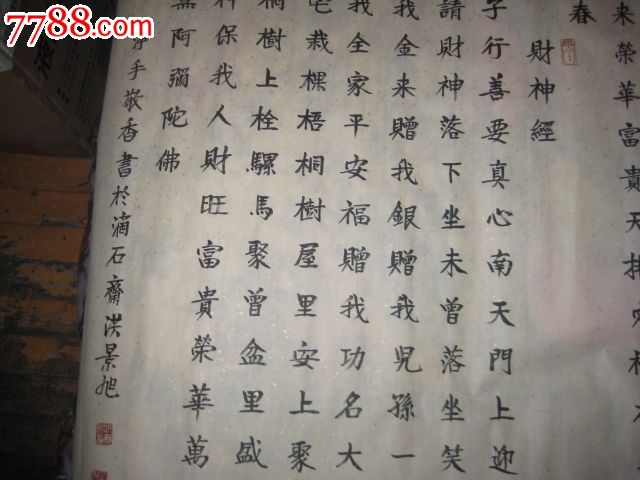 7788.com
来榮華富貴天排
春
財神經
子行善要真心南天門上迎
請財神落下坐未曾落坐笑
我金来贈我銀贈我兒孫一
我全家平安福贈我功名大
宅栽棵梧桐樹屋里安上聚
桐樹上栓騾馬聚曾盆里盛
保我人財旺富貴榮華萬
無阿彌陀佛
手敬香書於滴石齋洪景旭